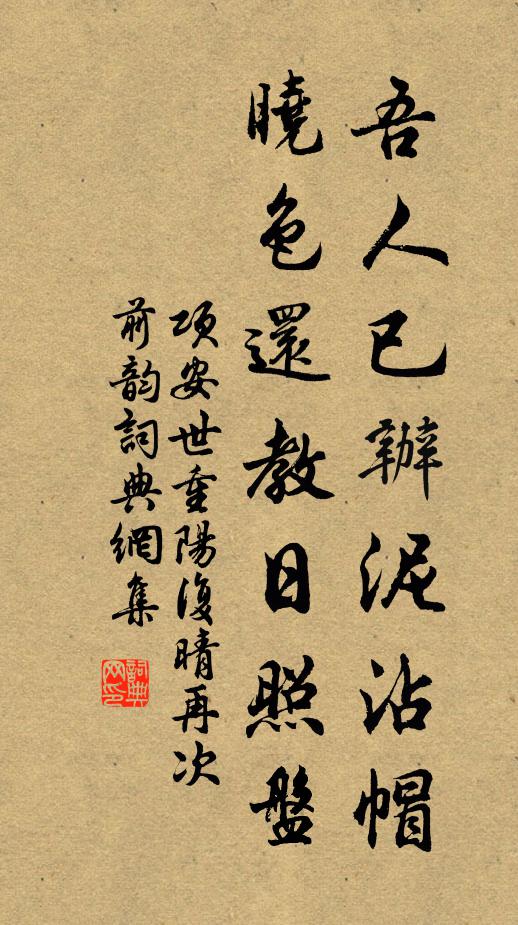 吾人已辦泥沾帽
曉色還教日照盤
項安世重陽復晴再次
前韵詞典網集
詞典网印